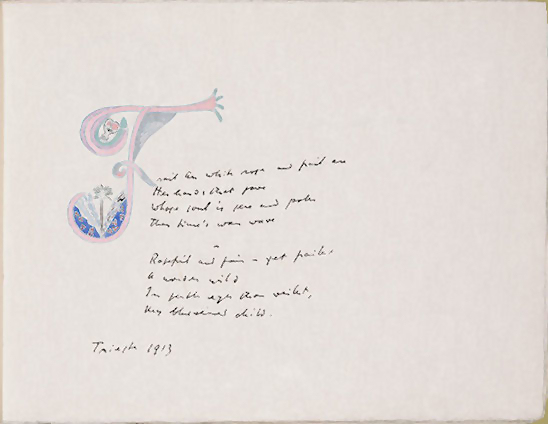 Frail the white rose and frail are
Her hands that gave
Whose soul is sere and paler
Than time's wan wave
Rosefrail and fair – yet frailest
A wonder wild
In gentle eyes thou veilest,
My blueveined child.
Trieste 1913